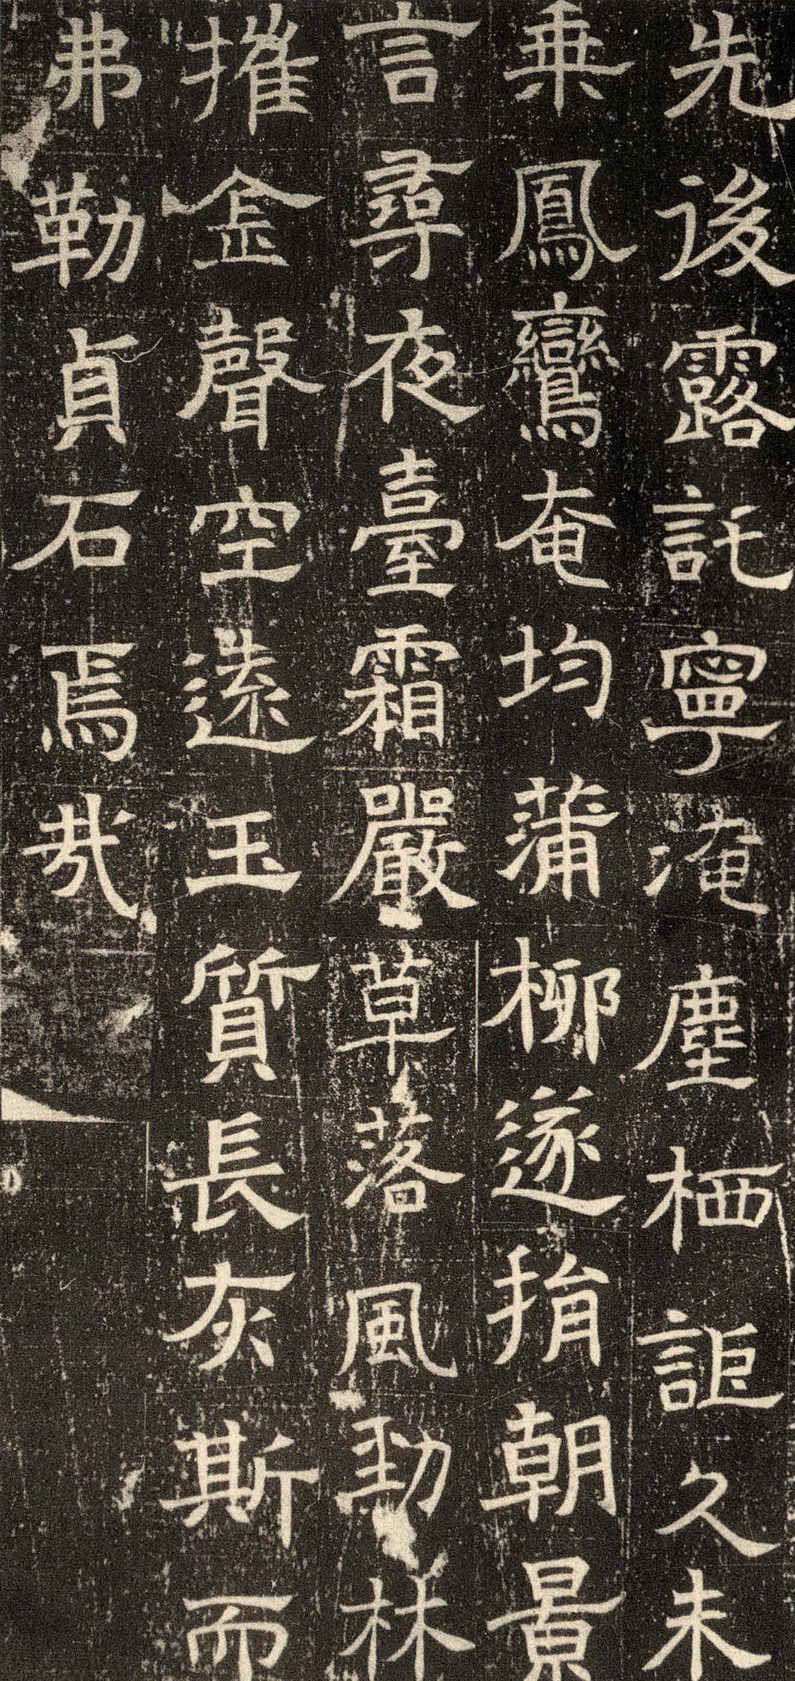 先後露託寧淹塵栖詎久未
乗鳳鸞奄均蒲柳遂捐朝景
言尋夜臺霜嚴草落風勁林
摧金聲空遠玉質長灰斯而
弗勒貞石焉哉